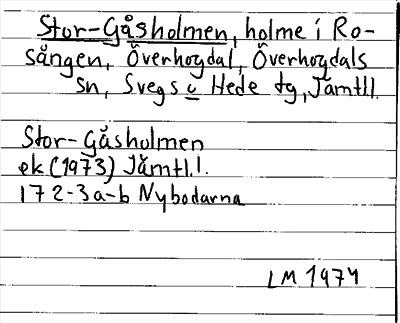 Stor-Gåsholmen, holme i Ro-
sången, Överhogdal, Överhogdals
sn, Svegs o Hede tg, Jämtl l.
Stor-Gåsholmen
ek (1973) Jämtl. l.
172-3a-b Nybodarna
LM 1974